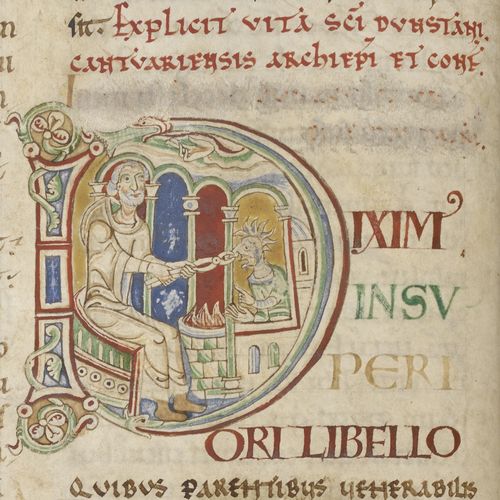 sit. Explicit vita sci dunstani.
cantuariensis archiepi et conf.
DIXIM
INSU
PERI
ORI LIBELLO
QUIBUS PARENTIBUS VENERABILIS